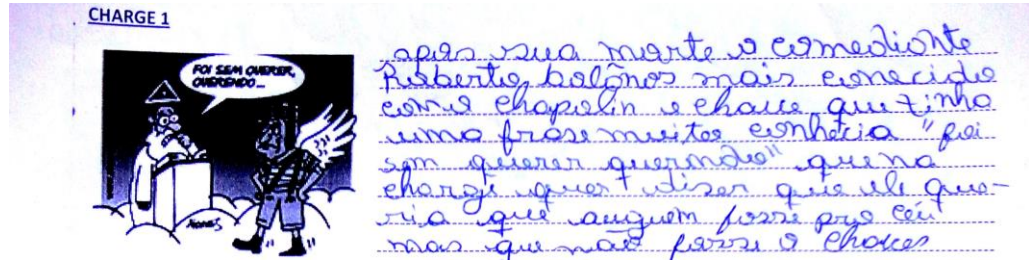 CHARGE 1
FOI SEM QUERER,
QUERENDO...
após sua morte o comediante
Roberto bolãnos mais conecido
como chapolin e chaves que tinha
uma frase muito conhecia "foi
sem querer querendo" que na
charge quer diser que ele que-
ria que auguem fosse pro céu
mas que não fosse o chaves